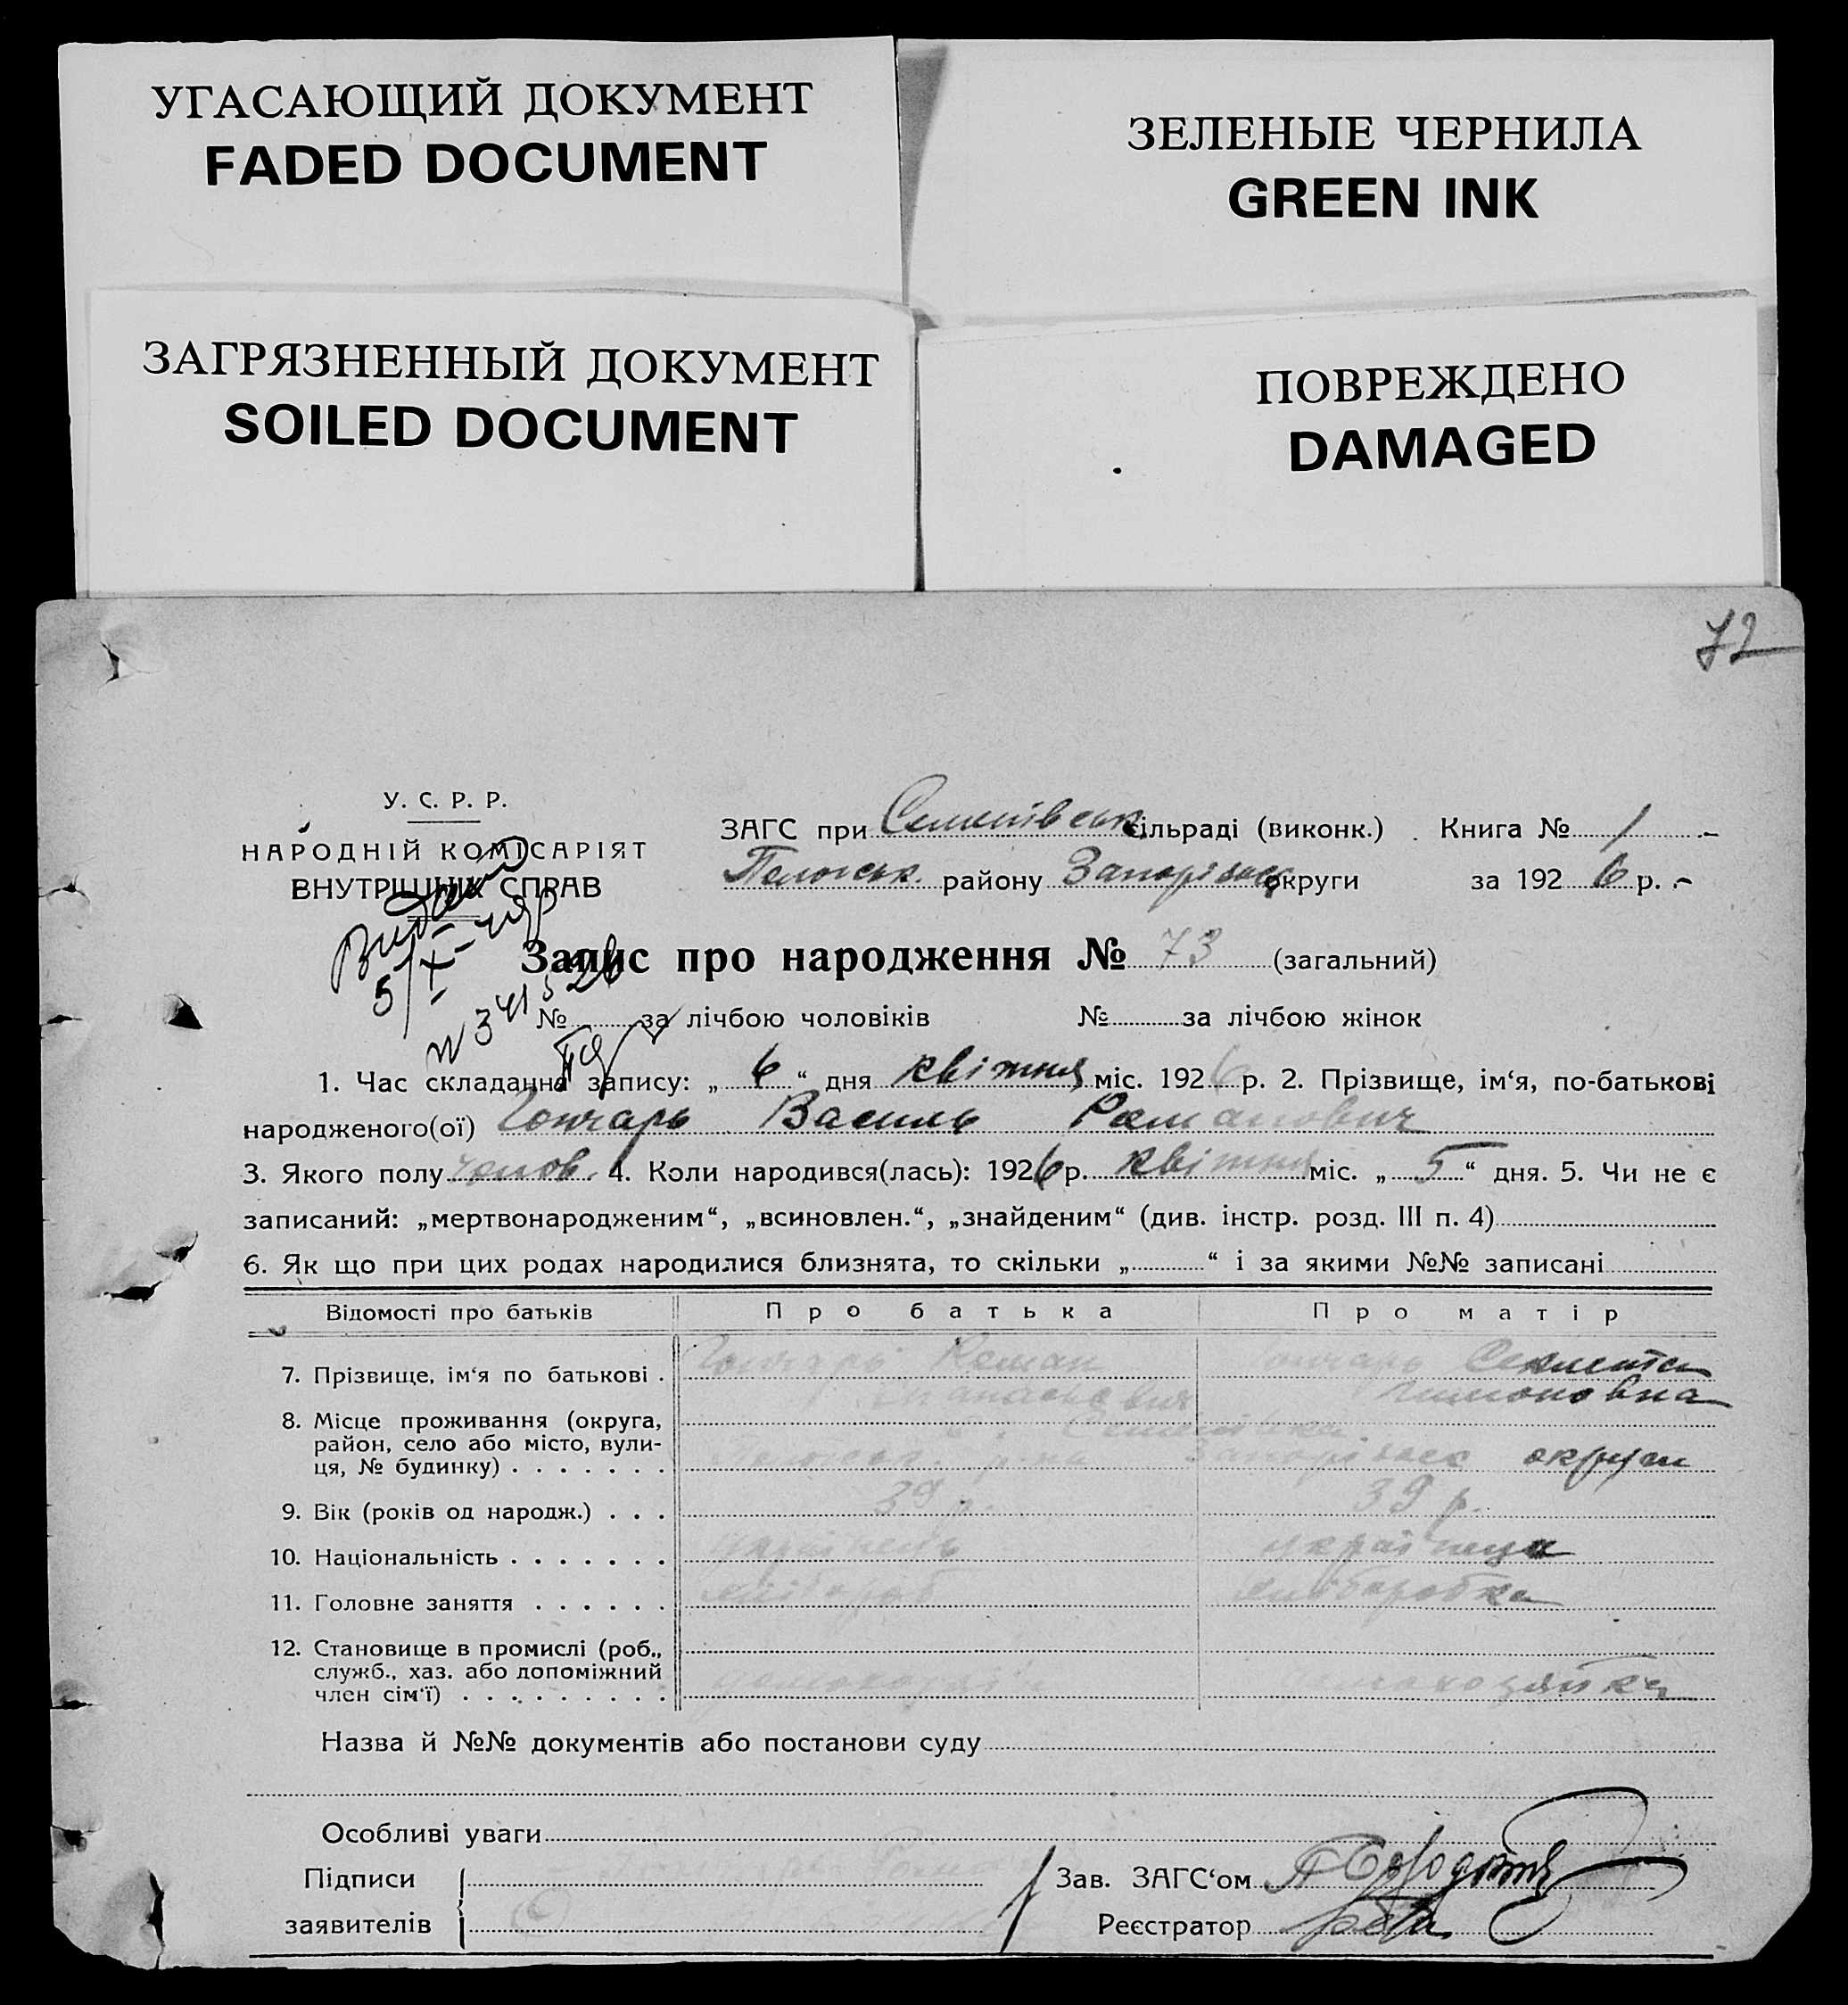 УГАСАЮЩИЙ ДОКУМЕНТ
FADED DOCUMENT
ЗЕЛЕНЫЕ ЧЕРНИЛА
GREEN INK
ЗАГРЯЗНЕННЫЙ ДОКУМЕНТ
SOILED DOCUMENT
ПОВРЕЖДЕНО
DAMAGED
72
У. С. Р. Р.
НАРОДНІЙ КОМІСАРІЯТ
ВНУТРІШНІХ СПРАВ
Видано
5/X-
ЗАГС при Семенівськ. сільраді (виконк.) Книга № 1
Пологськ. району Запорізьк округи за 1926 р.
Запис про народження № 73 (загальний)
№ за лічбою чоловіків № за лічбою жінок
1. Час складання запису: „ 6 “ дня квітня міс. 1926 р. 2. Прізвище, ім‘я, по-батькові
народженого(ої) Гончарь Василь Романович
3. Якого полу чолов. 4. Коли народився(лась): 1926 р. квітня міс. „ 5 “ дня. 5. Чи не є
записаний: „мертвонародженим“, „всиновлен.“, „знайденим“ (див. інстр. розд. III п. 4)
6. Як що при цих родах народилися близнята, то скільки „ “ і за якими №№ записані
Відомості про батьків Про батька Про матір
7. Прізвище, ім‘я по батькові . Гончарь Роман Гончарь
8. Місце проживання (округа, Семенівка
район, село або місто, вули-
ця, № будинку) . . . . . . . Пологськ. р-на Запорізьк округи
9. Вік (років од народж.) . . . 39 р. 39 р.
10. Національність . . . . . . . українець українка
11. Головне заняття . . . . . . хлібороб хліборобка
12. Становище в промислі (роб.,
служб., хаз. або допоміжний
член сім‘ї) . . . . . . . . .
Назва й №№ документів або постанови суду
Особливі уваги
Підписи
заявителів
Зав. ЗАГС‘ом
Реєстратор